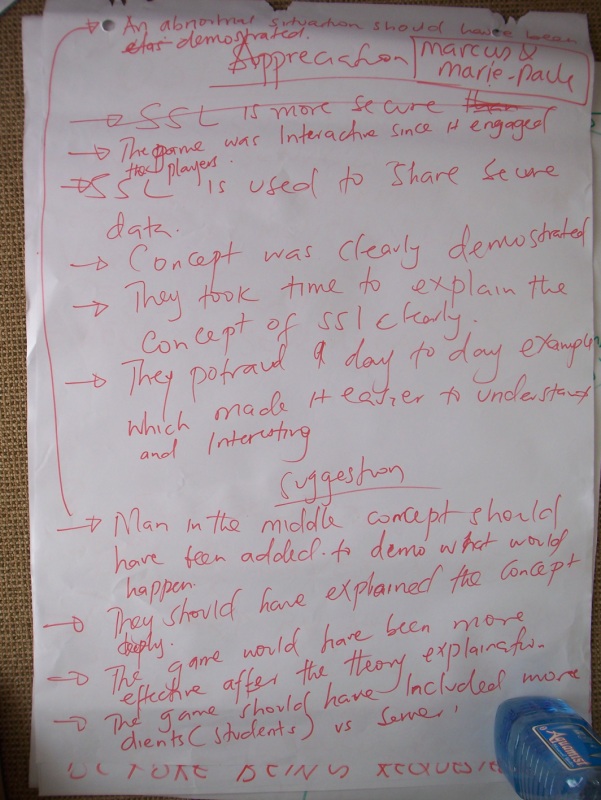 → An abnormal situation should have been
demostrated.
Appreciation
marcus &
marie-paule
→ SSL is more secure than
→ The game was Interactive since it engaged
the players.
→ SSL is used to share secure
data.
→ Concept was clearly demostrated
→ They took time to explain the
concept of SSl clearly.
→ They potraud a day to day example
which made it easier to understand
and Interesting
Suggestion
→ Man in the middle concept should
have been added to demo what would
happen.
→ They should have explained the concept
deeply.
→ The game would have been more
effective after the theory explaination.
→ The game should have Included more
clients (students) vs server.
BEING
Aquamist